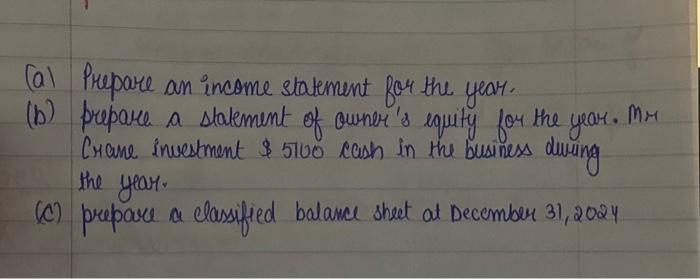 (a) Prepare an income statement for the year.
(b) prepare a statement of owner's equity for the year. Mr
Crane investment $ 5100 cash in the business during
the year.
(c) prepare a classified balance sheet at December 31, 2024